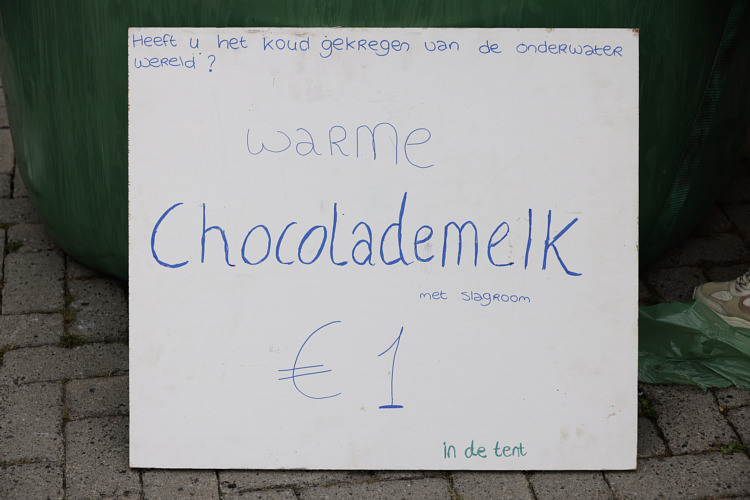 Heeft u het koud gekregen van de onderwater
wereld?
warme
Chocolademelk
met slagroom
€ 1
in de tent